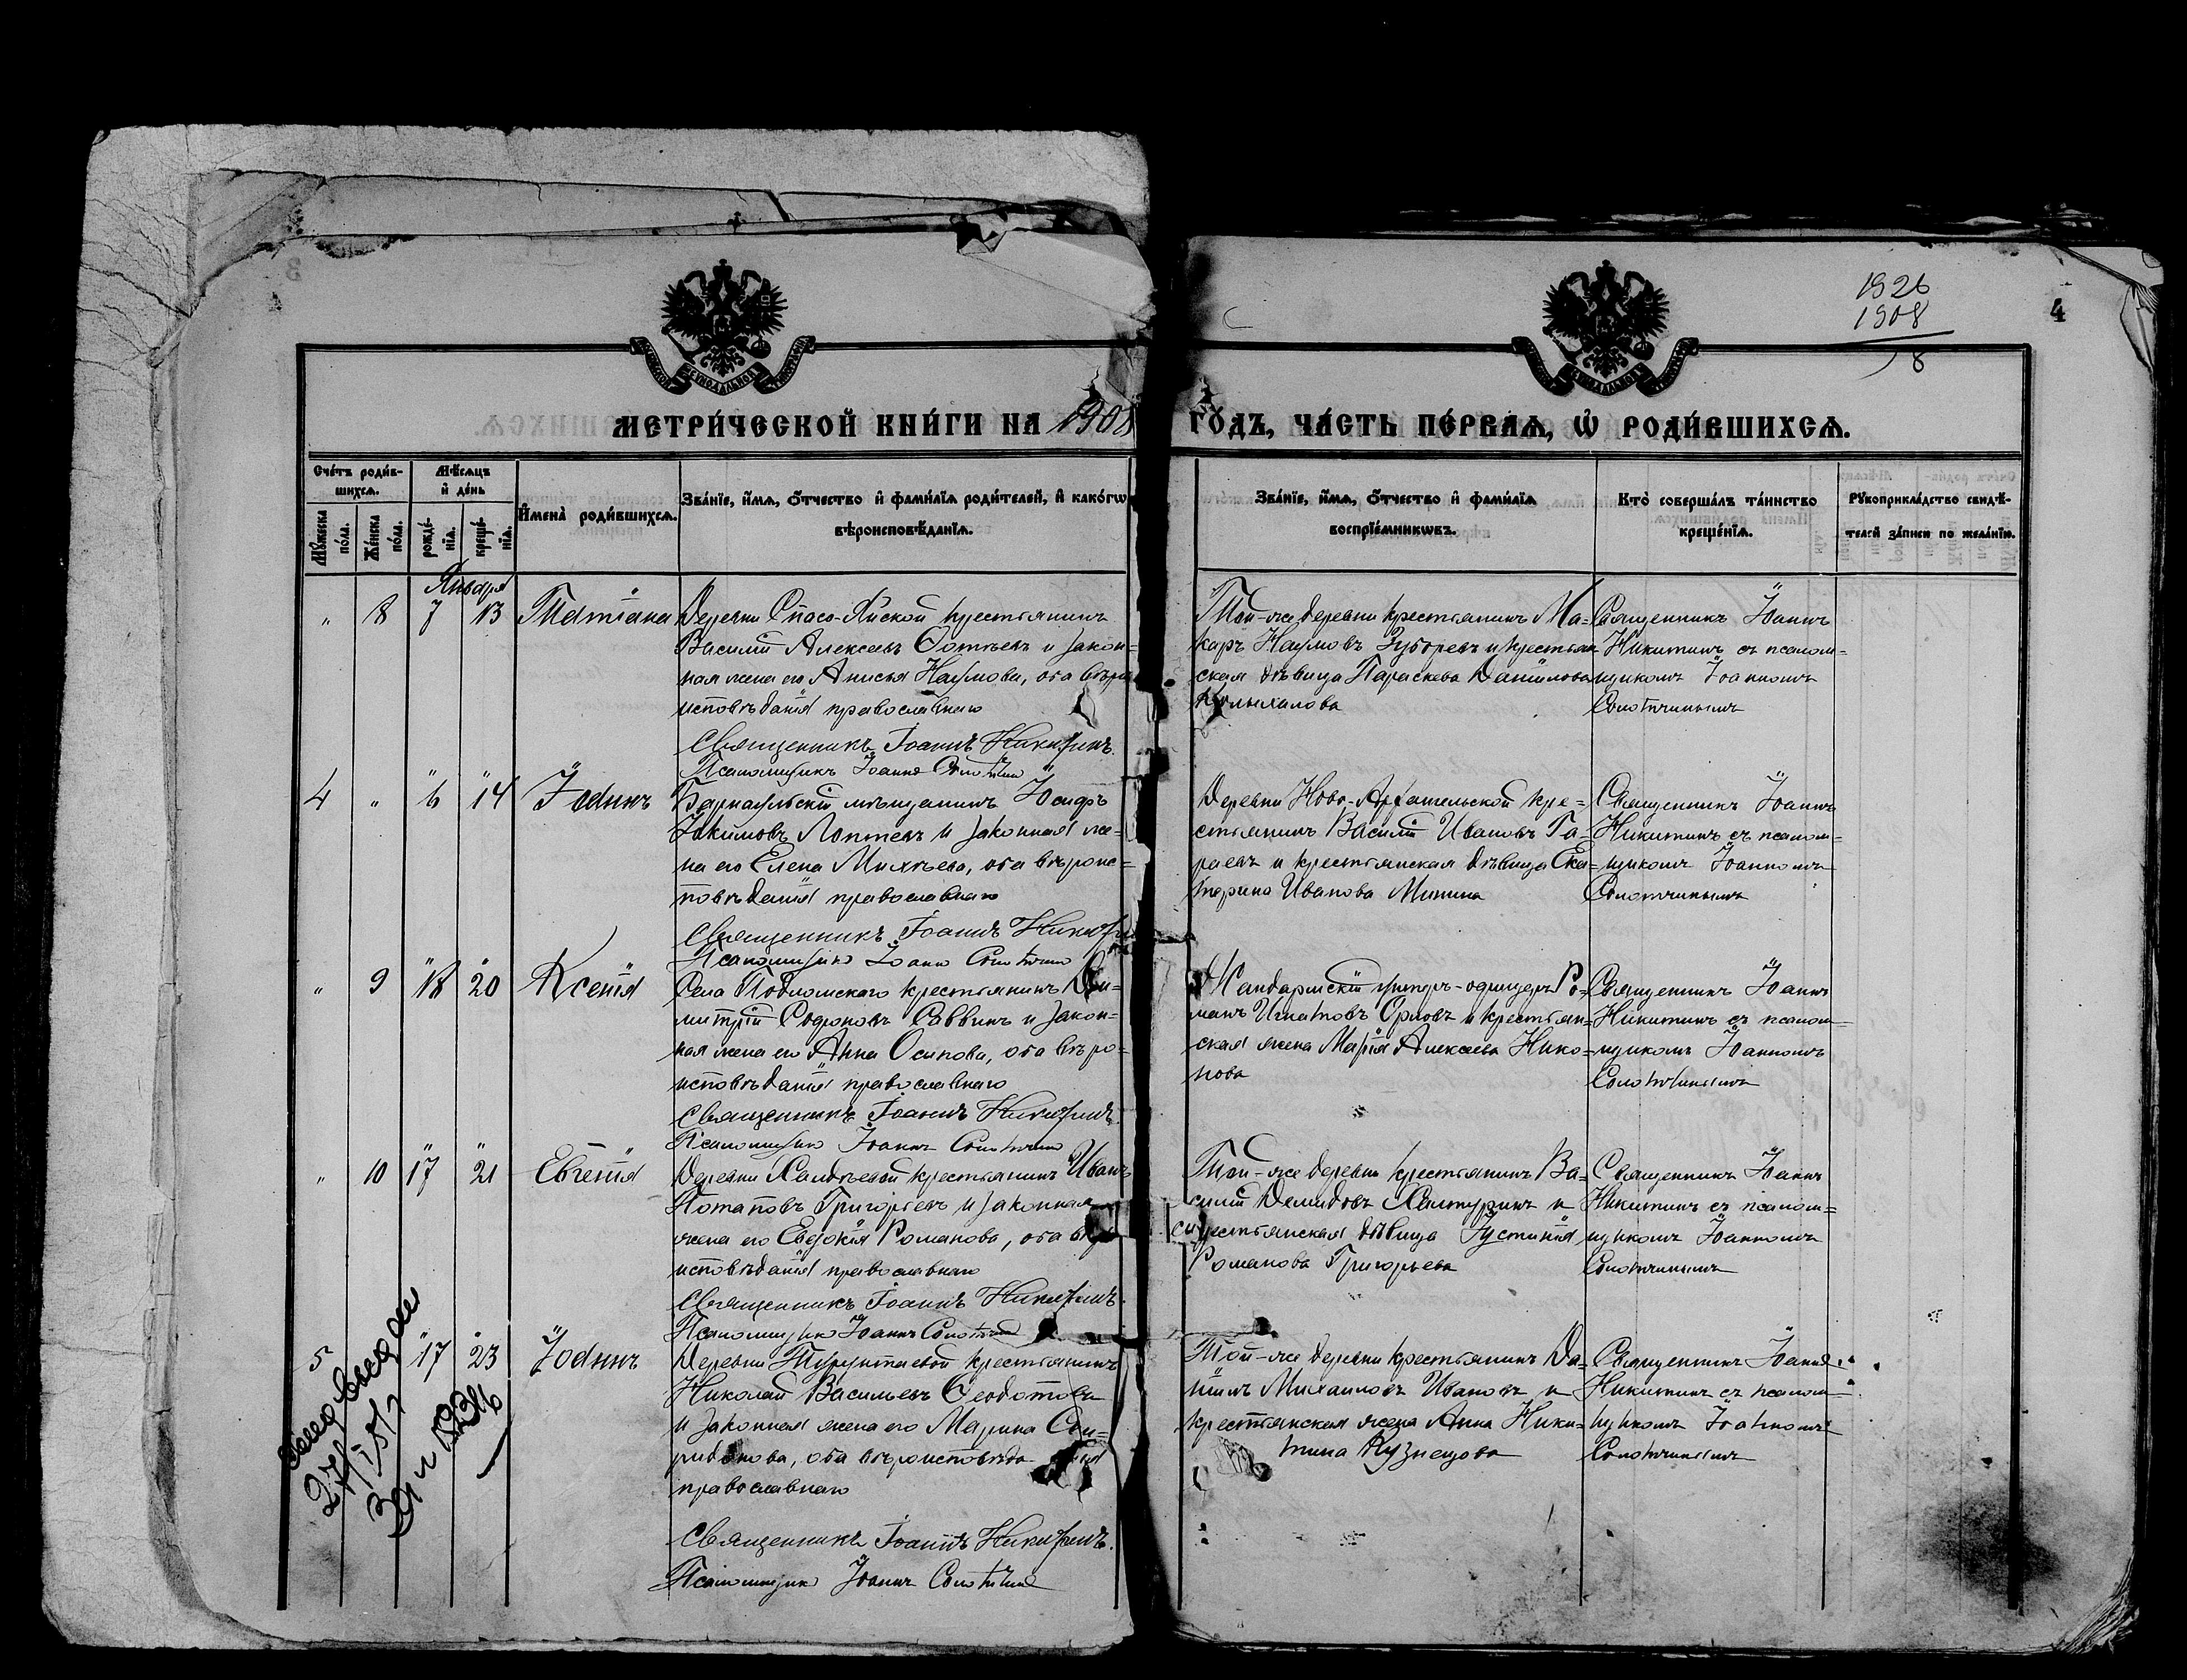 1926
1908
18
4
МЕТРИ́ЧЕСКОЙ КНИ́ГИ НА 1908 ГО́ДЪ, ЧА́СТЬ ПЕ́РВАѦ, Ѡ҆ РОДИ́ВШИХСѦ.
Сче́тъ роди́в-
шихсѧ.
Мѣ́сѧцъ
и҆ де́нь
Мꙋ́жеска по́ла.
Же́нска по́ла.
рожде́-нїѧ.
креще́-нїѧ.
И҆мена̀ роди́вшихсѧ.
Зва́нїе, и҆́мѧ, ѻ҆́тчество и҆ фами́лїѧ роди́телей, и҆ како́гѡ
вѣроисповѣ́данїѧ.
Зва́нїе, и҆́мѧ, ѻ҆́тчество и҆ фами́лїѧ
воспрїе́мникѡвъ.
Кто̀ соверша́лъ та́инство
креще́нїѧ.
Рꙋкоприкла́дство свидѣ́-
телей за́писи по жела́нїю.
Января
" 8 7 13 Татіана
Деревни Спасо-Яйской крестьянинъ
Василій Алексѣевъ и закон-
ная жена его Анисья Наумова, оба вѣро
исповѣданія православнаго
Священникъ Іоаннъ Никитинъ.
Псаломщикъ Іоаннъ
Той-же деревни крестьянинъ Ма-
каръ Наумовъ Зубаревъ и крестьян
ская дѣвица Параскева Даніилова
Священникъ Іоаннъ
Никитинъ съ псалом-
щикомъ Іоанномъ
Солотчинымъ
4 " 6 14 Іоаннъ
Барнаульскій мѣщанинъ Іосифъ
Іакимовъ Лаптевъ и законная же-
на его Елена Михѣева, оба вѣроис-
повѣданія православнаго
Священникъ Іоаннъ Никитин
Псаломщикъ Іоаннъ
Деревни Ново-Архангельской кре-
стьянинъ Василій Ивановъ Га-
раевъ и крестьянская дѣвица Ека-
терина Иванова Минина
Священникъ Іоаннъ
Никитинъ съ псалом-
щикомъ Іоанномъ
Солотчинымъ
" 9 18 20 Ксенія
Села Подломскаго крестьянинъ Ди-
митрій Софроновъ Саввинъ и закон-
ная жена его Анна Осипова, оба вѣро-
исповѣданія православнаго
Священникъ Іоаннъ Никитинъ.
Псаломщикъ Іоаннъ
Жандармскій унтеръ-офицеръ Ро-
манъ Игнатовъ Орловъ и крестьян-
ская жена Марія Алексѣева Нико-
нова
Священникъ Іоаннъ
Никитинъ съ псалом-
щикомъ Іоанномъ
Солотчинымъ
" 10 17 21 Евгенія
Деревни Халдѣевой крестьянинъ Иванъ
Потаповъ Григорьевъ и законная
жена его Евдокія Романова, оба вѣро
исповѣданія православнаго
Священникъ Іоаннъ Никитинъ.
Псаломщикъ Іоаннъ
Той-же деревни крестьянинъ Ва-
силій Демидовъ Халтуринъ и
крестьянская дѣвица Іустинія
Романова Григорьева
Священникъ Іоаннъ
Никитинъ съ псалом-
щикомъ Іоанномъ
Солотчинымъ
5 17 23 Іоаннъ
Деревни Турунтаевой крестьянинъ
Николай Васильевъ Ѳеодотовъ
и законная жена его Марина Спи-
ридонова, оба вѣроисповѣда нія
православнаго
Священникъ Іоаннъ Никитинъ.
Псаломщикъ Іоаннъ
Той-же деревни крестьянинъ Да-
ніилъ Михаиловъ Ивановъ и
крестьянская жена Анна Ники-
тина Кузнецова
Священникъ Іоаннъ
Никитинъ съ псалом-
щикомъ Іоанномъ
Солотчинымъ